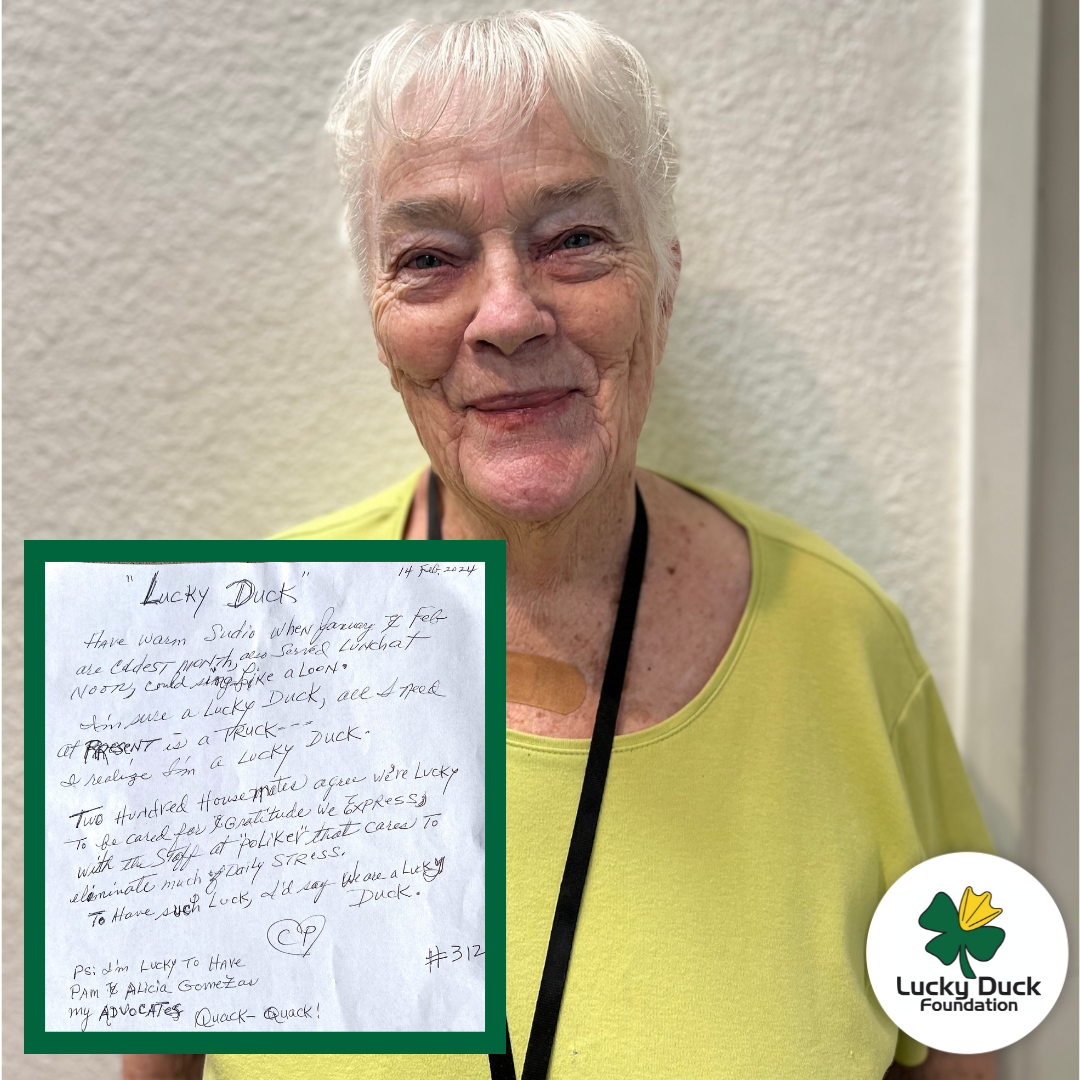 14 Feb, 2024
"Lucky Duck"
Have warm Sudio when January & Feb
are coldest month, also served Lunchat
Noon, could sing like a Loon.
I'm sure a Lucky Duck, all I need
at PRESENT is a TRUCK---
I realize I'm a Lucky Duck.
Two Hundred Housemates agree we're Lucky
To be cared for & Gratitude we Express,
with the Staff at "PoLiKer" that cares To
eliminate much of Daily STRess.
To Have such Luck, I'd say We are a Lucky
Duck.
CP
#312
PS: I'm Lucky To Have
PAM & ALicia Gomez as
my ADVOCATes Quack-Quack!
Lucky Duck
Foundation